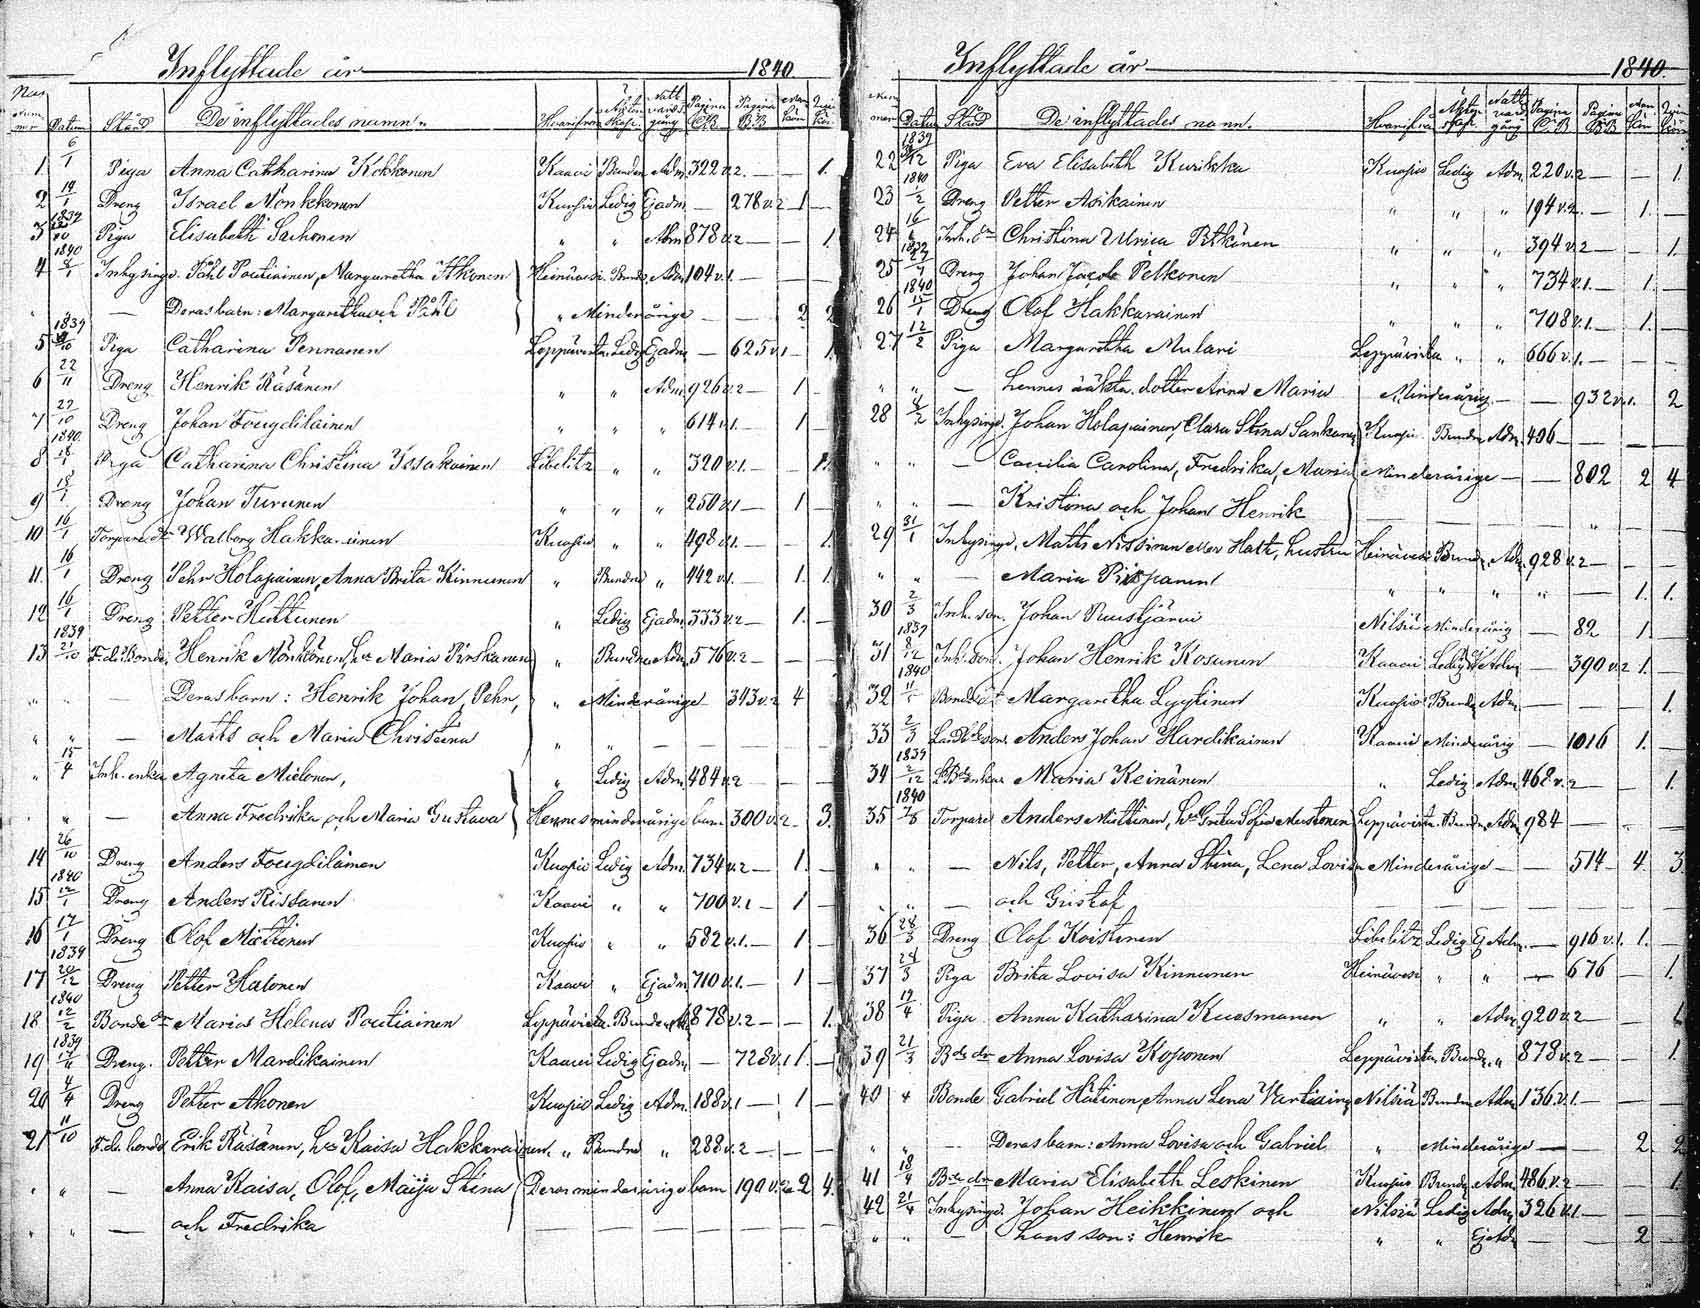 Inflyttade år 1840
Datum Stånd De inflyttades namn. Hvarifrån Pagina CB Pagina BB
1. 6/1 Piga Anna Catharina Kokkonen Kaavi Bunden Adm. 322 v.2. — — 1.
2 14/1 Dreng Israel Mönkkonen Kuopio Ledig Ej adm. — 278 v.2 1 —
1839
3 Piga Elisabeth Sarhonen " " Adm 878 v.2 — — 1.
1840
4 Inhysing. Påhl Poutiainen, Margaretha Itkonen Heinävesi Bundne Adm. 104 v.1. — — —
" " — Deras barn: Margaretha och Påhl " Minderårige — — 2 2
1839
5 Piga Catharina Pennanen Leppävirta Ledig Ej adm. — 625 v.1 — 1.
6 22/11 Dreng Henrik Räsänen " " Adm. 926 v.2 — 1 —
7 27/10 Dreng Johan Fougdiläinen " " " 614 v.1. — 1 —
1840.
8 Piga Catharina Christina Issakainen Libelitz " " 320 v.1. — — 1.
9 18/1 Dreng Johan Turunen " " " 250 v.1 — 1 —
10 16/1 Torpare dr Walborg Hakkarainen Kuopio " " 498 v.1. — — 1.
11. 16/1 Dreng Pehr Holapainen, Anna Brita Kinnunen " Bundne " 442 v.1. — 1. 1.
12 16/1 Dreng Petter Huttunen " Ledig Ej adm. 333 v.2 — 1. —
1839
13 21/10 F.d. Bonde, Henrik Mönkönen, h. Maria Pirskanen " Bundne Adm. 576 v.2 — — —
" " — Deras barn: Henrik Johan, Pehr, " Minderårige — 343 v.2 4
" " — Matts och Maria Christina " " — — — —
" 15/4 Inh. enka Agneta Mielonen, " Ledig Adm. 484 v.2 — — —
" " — Anna Fredrika och Maria Gustava Hennes minderårige barn 300 v.2 — 3.
14 26/10 Dreng Anders Fougdiläinen Kuopio Ledig Adm. 734 v.2 — 1. —
1840
15 12/1 Dreng Anders Rissanen Kaavi " " 700 v.1 — 1 —
16 17/1 Dreng Olof Miettinen Kuopio " " 582 v.1. — 1 —
1839
17 20/12 Dreng Petter Halonen Kaavi " Ej adm. 710 v.1. — 1 —
1840
18 12/2 Bonde dr Maria Helena Poutiainen Leppävirta. Bunden Adm. 878 v.2 — — 1.
1839
19 Dreng. Petter Mardikainen Kaavi Ledig Ej adm. — 728 v.1 1. —
20 4/4 Dreng Petter Ahonen Kuopio Ledig Adm. 188 v.1 — 1 —
21 11/10 F.d. bonde Erik Räsänen, h. Kaisa Hakkarainen, " Bundne " 288 v.2 — — —
" " — Anna Kaisa, Olof, Maija Stina Deras minderårige barn 190 v.2 2 4.
" " — och Fredrika — — — — —
Inflyttade år 1840.
Datum Stånd De inflyttades namn. Hvarifrå Pagina C.B. Pagina BB
1839
22 Piga Eva Elisabeth Kurikka Kuopio Ledig Adm. 220 v.2 — — 1
1840
23 1/2 Dreng Petter Asikainen " " " 194 v.2. — 1. —
24 Inh. dr Christina Ulrica Pitkänen " " " 394 v.2 — — 1.
25 Dreng Johan Jacob Pelkonen " " " 734 v.1. — 1. —
1840
26 15/1 Dreng Olof Hakkarainen " " " 708 v.1. — 1. —
27 12/2 Piga Margaretha Mulari Leppävirta " " 666 v.1. — — —
" " — hennes oäkta dotter Anna Maria Minderårig — — 932 v.1. 2
28 4/2 Inhysing. Johan Holapainen, Clara Stina Sankanen Kuopio Bundne Adm. 406 — — —
" " — Caecilia Carolina, Fredrika, Maria Minderårige — — 802 2 4
" " — Kristina och Johan Henrik — — — — " — —
29 31/1 Inhysinge, Matts Nissinen eller Hatt, hustru Heinävesi Bundne Adm. 928 v.2 — — —
" " — Maria Pirpanen " " " " — 1. 1.
30 2/3 Inh. son. Johan Puustjärvi Nilsiä Minderårig — 82 1. —
1839
31 8/12 Inh. son. Johan Henrik Kosunen Kaavi Ledig Ej Adm. — 390 v.2 1. —
1840
32 Bonde dr Margaretha Lyytinen Kuopio Bunden Adm. — — — 1.
33 2/3 Landb. son. Anders Johan Hurdikainen Kaavi Minderårig — 1016 1. —
1839
34 2/12 Enkan Maria Keinänen " Ledig Adm. 468 v.2 — — 1.
1840
35 Torpare Anders Miettinen, h. Greta Sofia Mustonen Leppävirta. Bundne Adm. 984 — — —
" " — Nils, Petter, Anna Stina, Lena Lovisa Minderårige — — 514 — 4. 3.
" " — och Gustaf — — — — —
36 28/3 Dreng Olof Koistinen Libelitz Ledig Ej Adm. — 916 v.1. 1. —
37 28/3 Piga Brita Lovisa Kinnunen Heinävesi " " — 676 — 1.
38 19/4 Piga Anna Katharina Kuosmanen " " Adm. 920 v.2 — — 1
39 21/3 Bde dr Anna Lovisa Koponen Leppävirta. Bunden " 878 v.2 — — 1.
40 " Bonde Gabriel Hätinen, Anna Lena Vartiainen Nilsiä Bundne Adm. 136 v.1. — — —
" " — Deras barn: Anna Lovisa och Gabriel " Minderårige — — 2. 2
41 18/4 Bde dr Maria Elisabeth Leskinen Kuopio Bunden Adm. 486 v.2 — — 1.
42 21/4 Inhysing. Johan Heikkinen och Nilsiä Ledig Adm. 326 v.1. — — —
" " — hans son: Henrik " " Ej Adm. — — 2 —